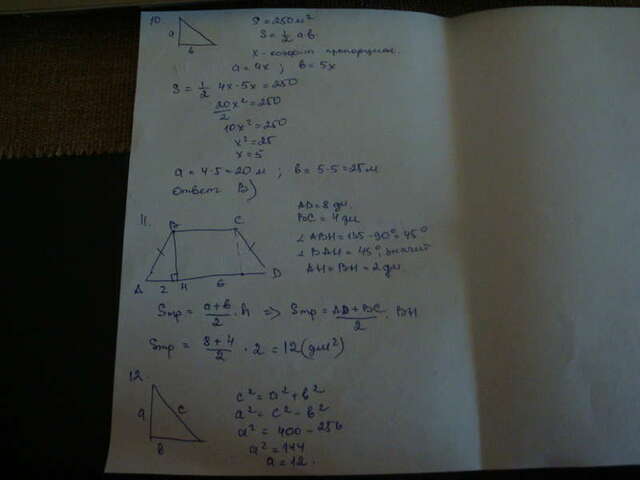 10.
a
b
S = 250 м²
S = 1/2 ab
x - коэф-т пропорцион.
a = 4x ; b = 5x
S = 1/2 4x·5x = 250
20/2 x² = 250
10x² = 250
x² = 25
x = 5
a = 4·5 = 20 м ; b = 5·5 = 25 м
Ответ B)
11.
B C
A 2 H 6 D
AD = 8 дм.
BC = 4 дм
∠ABH = 135 - 90° = 45°
∠BAH = 45°, значит
AH = BH = 2 дм.
Sтр = a+b/2 · h => Sтр = AD+BC/2 · BH
Sтр = 8+4/2 · 2 = 12 (дм²)
12.
a c
B
c² = a² + b²
a² = c² - b²
a² = 400 - 256
a² = 144
a = 12.